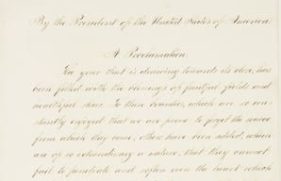 By the President of the United States of America.
A Proclamation.
The year that is drawing towards its close, has
been filled with the blessings of fruitful fields and
healthful skies. To these bounties, which are so con-
stantly enjoyed that we are prone to forget the source
from which they come, others have been added, which
are of so extraordinary a nature, that they cannot
fail to penetrate and soften even the heart which